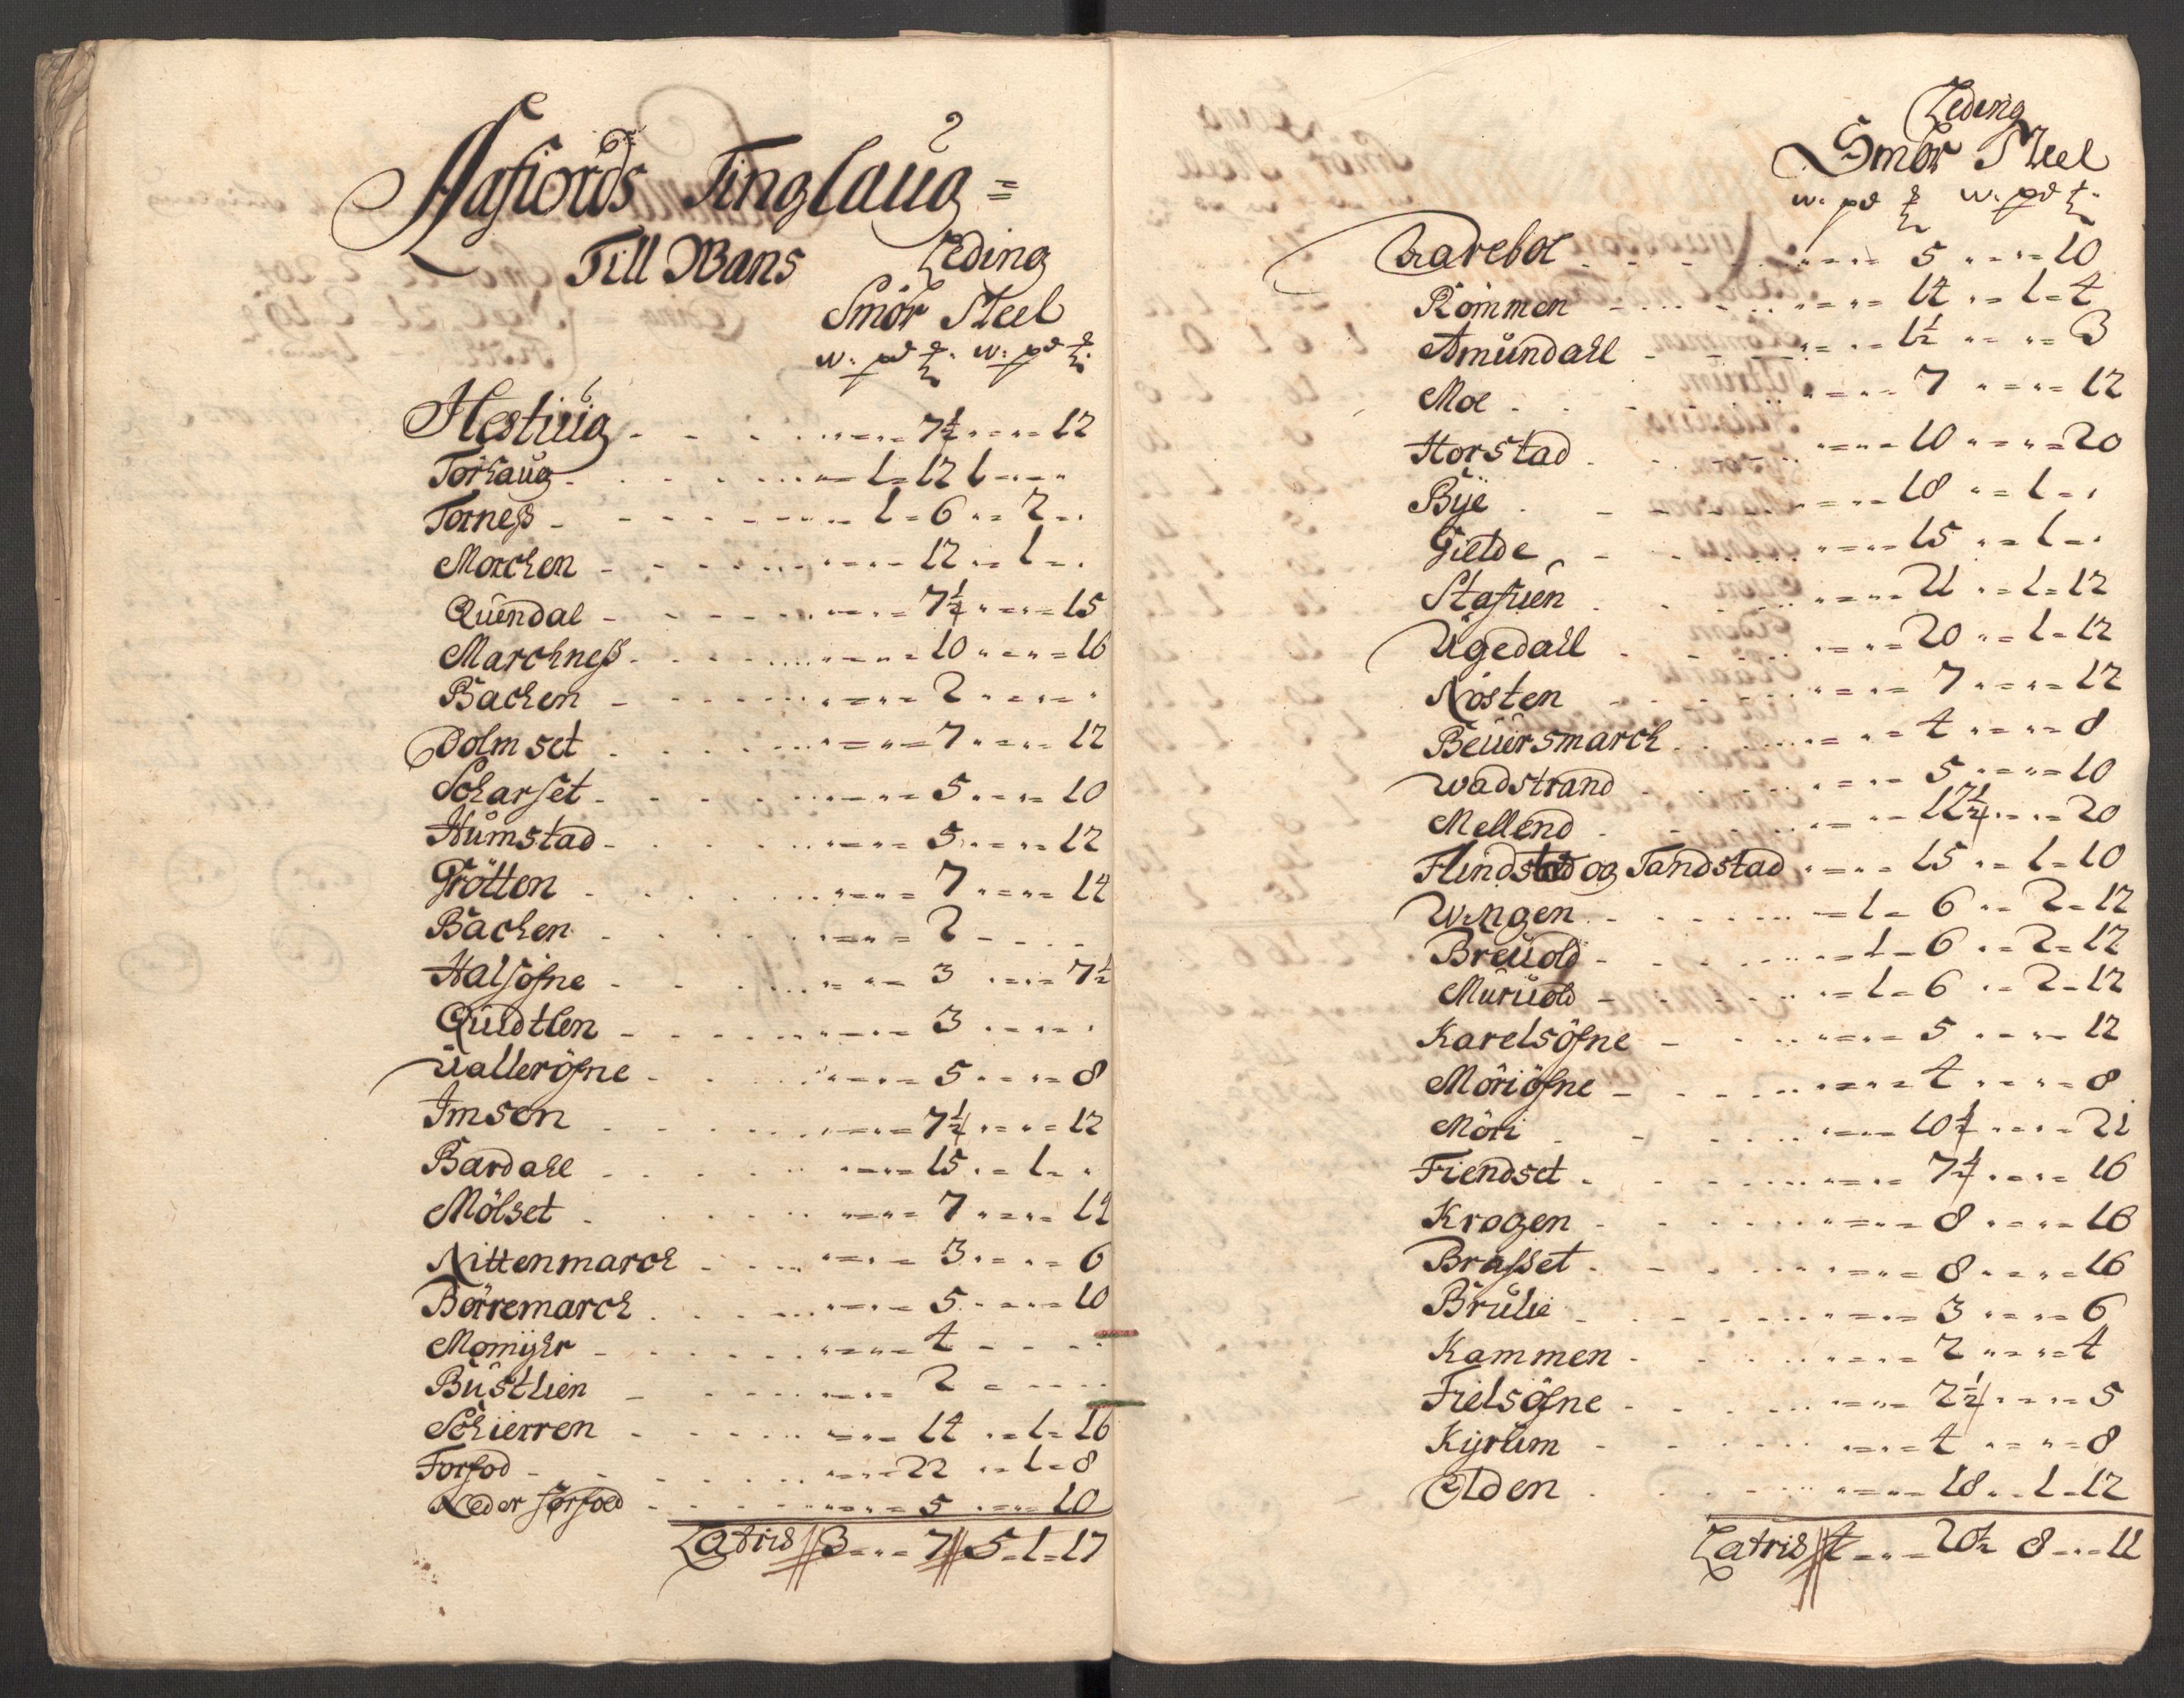 Aafiords Tinglaug =
Till Wans Leding
Smör Meel
w: pd ℔. w: pd ℔.
Hestuig - - - 7½ - - 12
Torhaug - - - 1 = 12 1 - -
Torness - - - 1 = 6 - 2 -
Morchen - - - 12 - 1 -
Quendal - - - 7½ - - 15
Marchness - - - 10 - - 16
Bachen - - - 2 - -
Dolmset - - - 7 - - 12
Scharset - - - 5 - - 10
Humstad - - - 5 - - 12
Grötten - - - 7 - - 14
Bachen - - - 2 - -
Halsöfne - - - 3 - - 7½
Quidtlen - - - 3 - -
Ualleröfne - - - 5 - - 8
Imsen - - - 7½ - - 12
Bardahl - - - 15 - 1 -
Mölset - - - 7 - - 12
Nittenmarch - - - 3 - - 6
Börremarch - - - 5 - - 10
Momyhr - - - 4 - -
Bustlien - - - 2 - -
Schierren - - - 14 - 1 = 16
Forfod - - - 22 - 1 = 8
Neder forfoed - - - 5 - - 10
Latris 3 - - 7 5 = 1 = 17
Leding
Smör Meel
w: pd ℔ w: pd ℔
Garebol - - - 5 - - 10
Römmen - - - 14 - 1 = 4
Amundahl - - - 1½ - - 3
Moe - - - 7 - - 12
Horstad - - - 10 - - 20
Bye - - - 18 - 1 -
Gielde - - - 15 - 1 -
Stafuen - - - 21 - 1 = 12
Ugedahl - - - 20 - 1 = 12
Nösten - - - 7 - - 12
Beuersmarch - - - 4 - - 8
Wadstrand - - - 5 - - 10
Mellend - - - 12½ - - 20
Flindstad og Tandstad - - - 15 - 1 = 10
Wingen - - - 1 = 6 - 2 = 12
Breuold - - - 1 = 6 - 2 = 12
Muruold - - - 1 = 6 - 2 = 12
Karelsöfne - - - 5 - - 12
Möriöfne - - - 4 - - 8
Möri - - - 10½ - - 21
Fiendset - - - 7½ - - 16
Krogen - - - 8 - - 16
Brasset - - - 8 - - 16
Brulie - - - 3 - - 6
Kammen - - - 2 - - 4
Fielsöfne - - - 2½ - - 5
Kyrum - - - 4 - - 8
Elden - - - 18 - 1 = 12
Latris 4 - - 20½ 8 - - 11